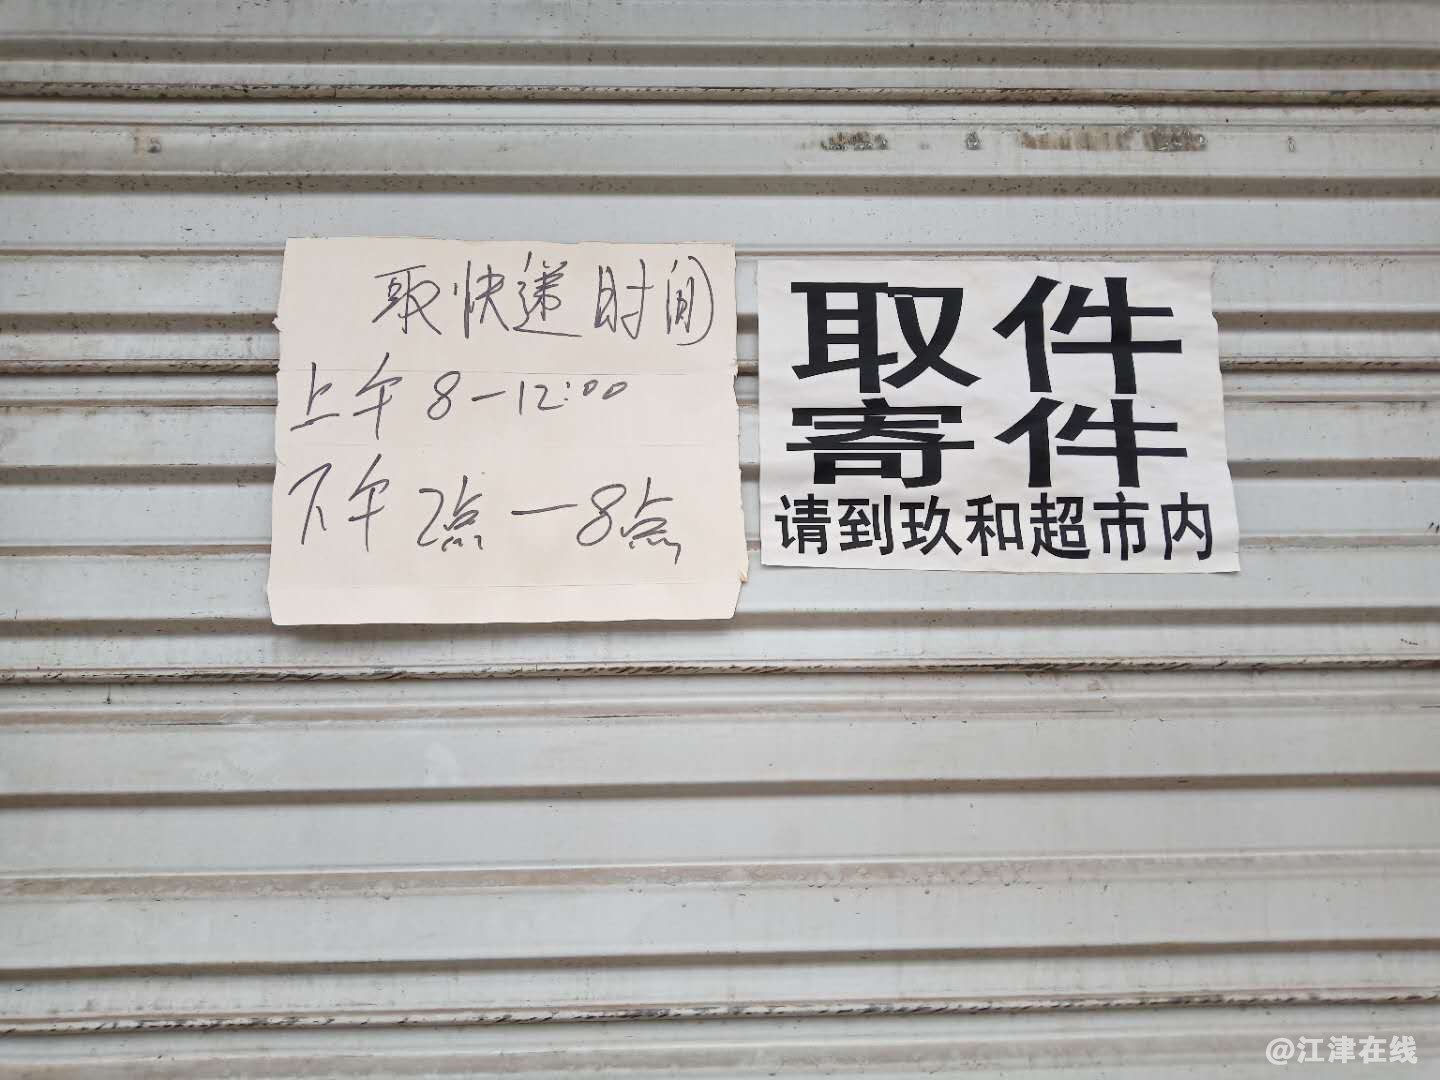 取快递时间
上午8-12:00
下午2点-8点
取件
寄件
请到玖和超市内
@江津在线